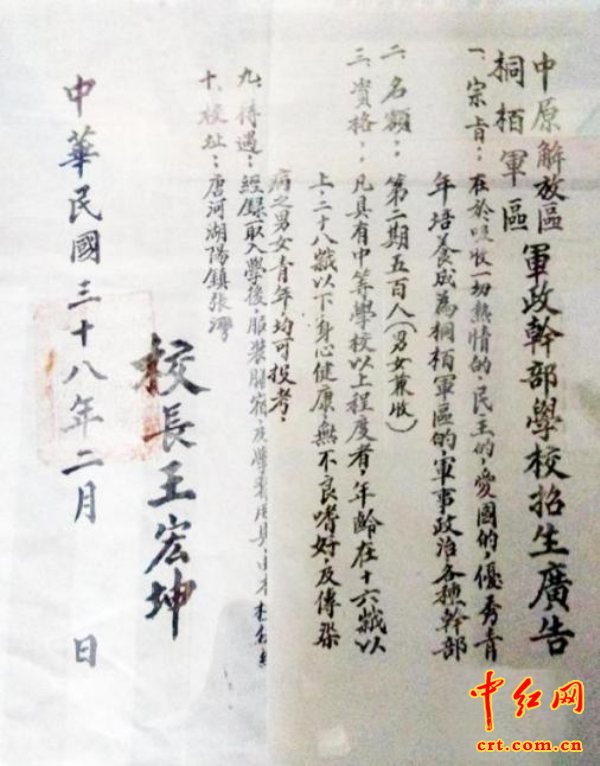 中原解放區
桐栢軍區
軍政幹部學校招生廣告
一、宗旨：在於吸收一切熱情的，民主的，愛國的，優秀青
年培養成為桐栢軍區的，軍事政治各種幹部
二、名額：第二期五百人（男女兼收）
三、資格：凡具有中等學校以上程度者，年齡在十六歲以
上，二十八歲以下，身心健康，無不良嗜好，及傳染
病之男女青年，均可投考。
九、待遇：經錄取入學後，服裝膳宿，及學習用具，由本校
十、校址：唐河湖陽鎮張灣
校長王宏坤
中華民國三十八年二月 日
中红网
crt.com.cn